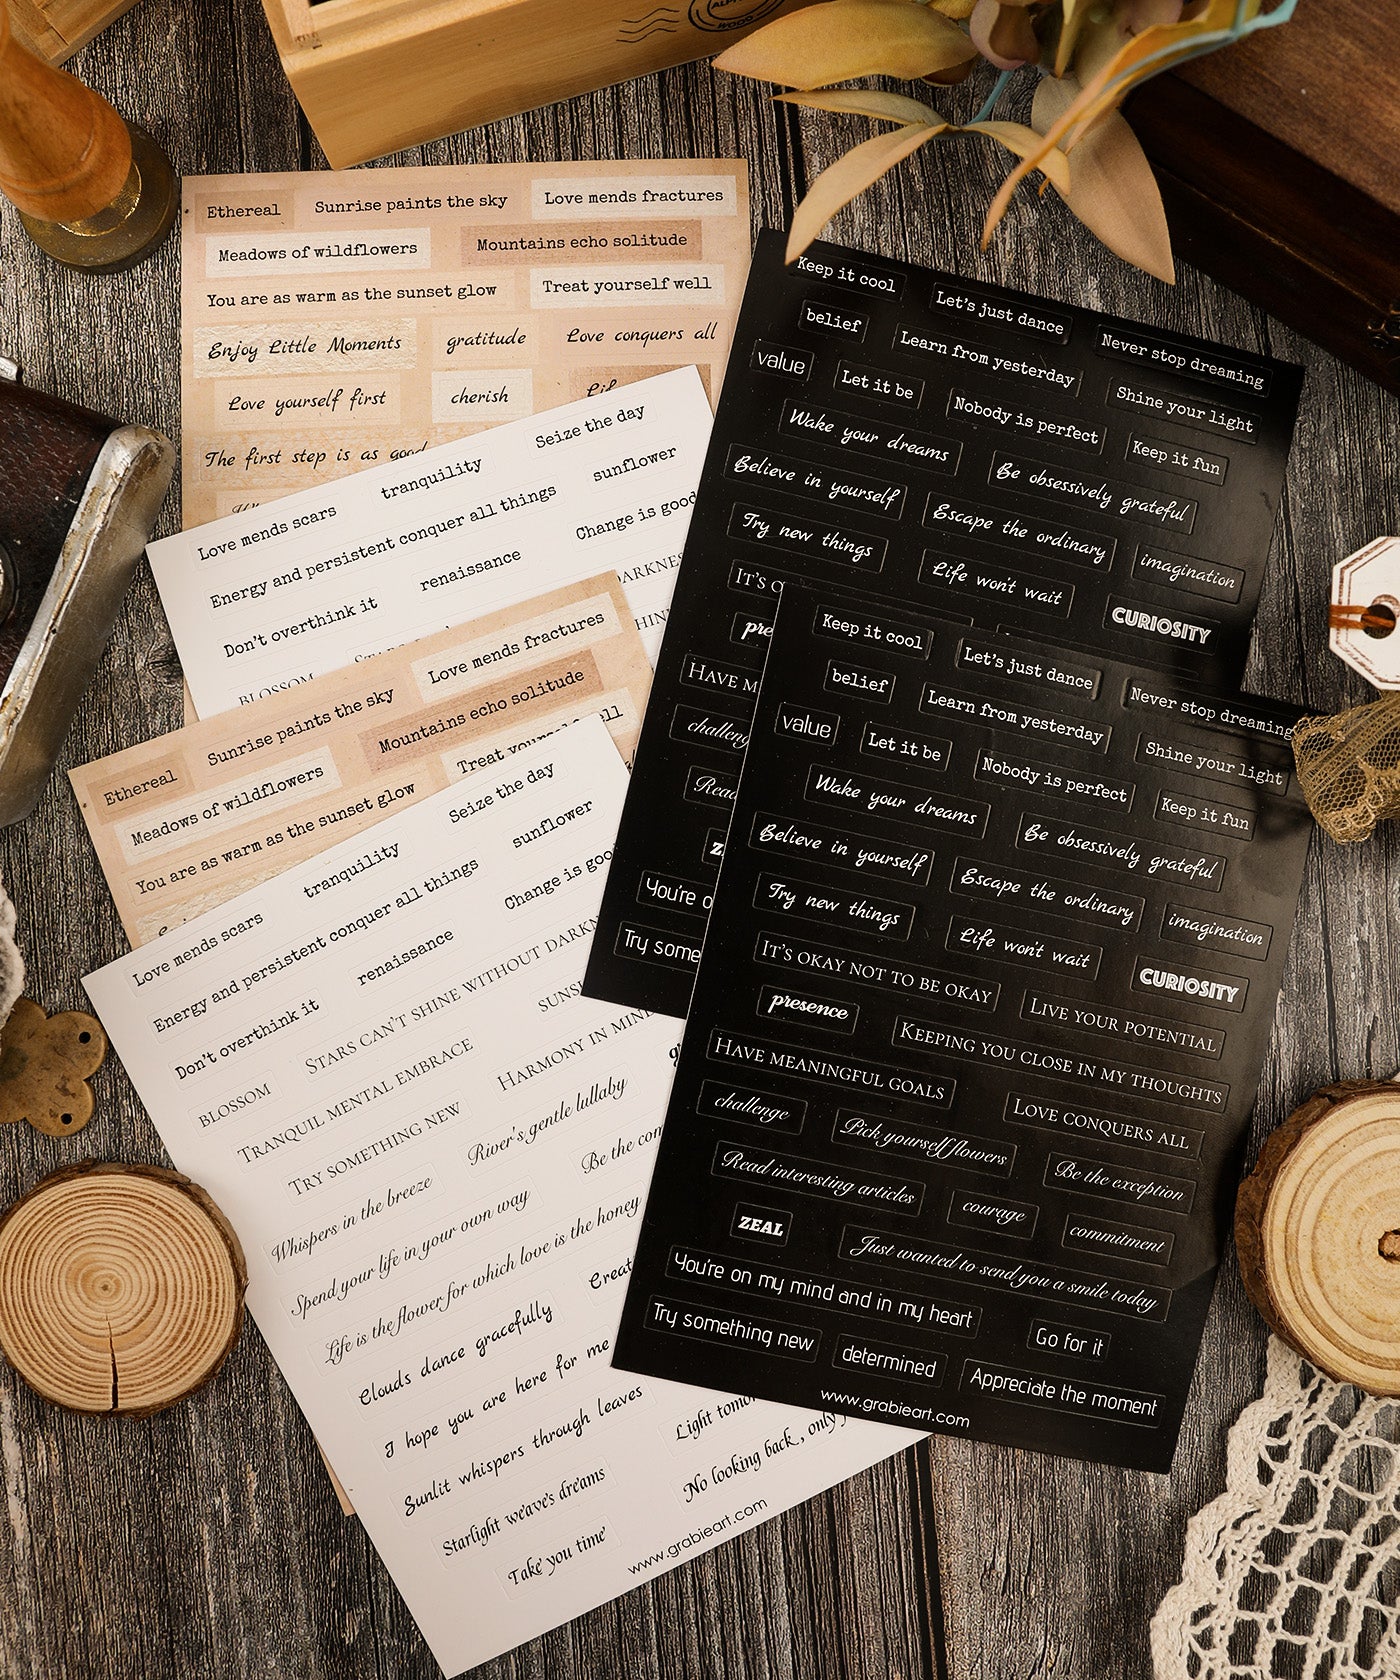 WOOD
Ethereal
Sunrise paints the sky
Love mends fractures
Meadows of wildflowers
Mountains echo solitude
You are as warm as the sunset glow
Treat yourself well
Enjoy Little Moments
gratitude
Love conquers all
Love yourself first
cherish
The first step is as good
Seize the day
tranquility
Love mends scars
sunflower
Energy and persistent conquer all things
Change is good
renaissance
Don't overthink it
BLOSSOM
Ethereal
Sunrise paints the sky
Love mends fractures
Meadows of wildflowers
Mountains echo solitude
You are as warm as the sunset glow
Treat
Seize the day
tranquility
Love mends scars
sunflower
Energy and persistent conquer all things
Change is
renaissance
Don't overthink it
STARS CAN'T SHINE WITHOUT
BLOSSOM
TRANQUIL MENTAL EMBRACE
HARMONY IN
TRY SOMETHING NEW
River's gentle lullaby
Whispers in the breeze
Be the
Spend your life in your own way
Life is the flower for which love is the honey
Clouds dance gracefully
I hope you are here for me
Sunlit whispers through leaves
Light
Starlight weaves dreams
No looking back, only
Take you time
www.grabieart.com
Keep it cool
Let's just dance
Never stop dreaming
belief
Learn from yesterday
Shine your light
value
Let it be
Nobody is perfect
Keep it fun
Wake your dreams
Be obsessively grateful
Believe in yourself
Escape the ordinary
imagination
Try new things
Life won't wait
CURIOSITY
IT'S
HAVE
You're
Try
Keep it cool
Let's just dance
Never stop dreaming
belief
Learn from yesterday
Shine your light
value
Let it be
Nobody is perfect
Keep it fun
Wake your dreams
Be obsessively grateful
Believe in yourself
Escape the ordinary
imagination
Try new things
Life won't wait
CURIOSITY
IT'S OKAY NOT TO BE OKAY
LIVE YOUR POTENTIAL
presence
KEEPING YOU CLOSE IN MY THOUGHTS
HAVE MEANINGFUL GOALS
LOVE CONQUERS ALL
challenge
Pick yourself flowers
Be the exception
Read interesting articles
courage
commitment
ZEAL
Just wanted to send you a smile today
You're on my mind and in my heart
Go for it
Try something new
determined
Appreciate the moment
www.grabieart.com